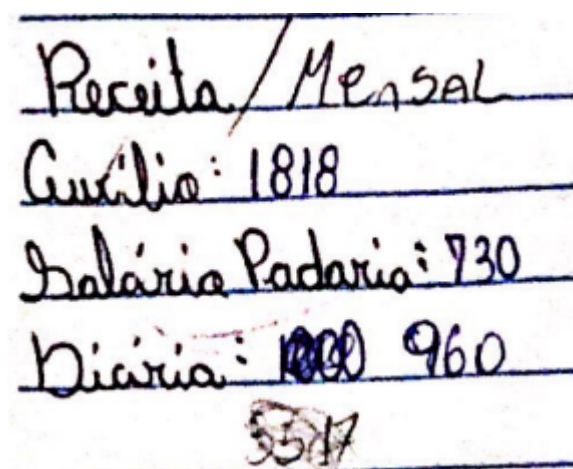 Receita / Mensal
Auxílio: 1818
Salário Padaria: 730
Diária: 960